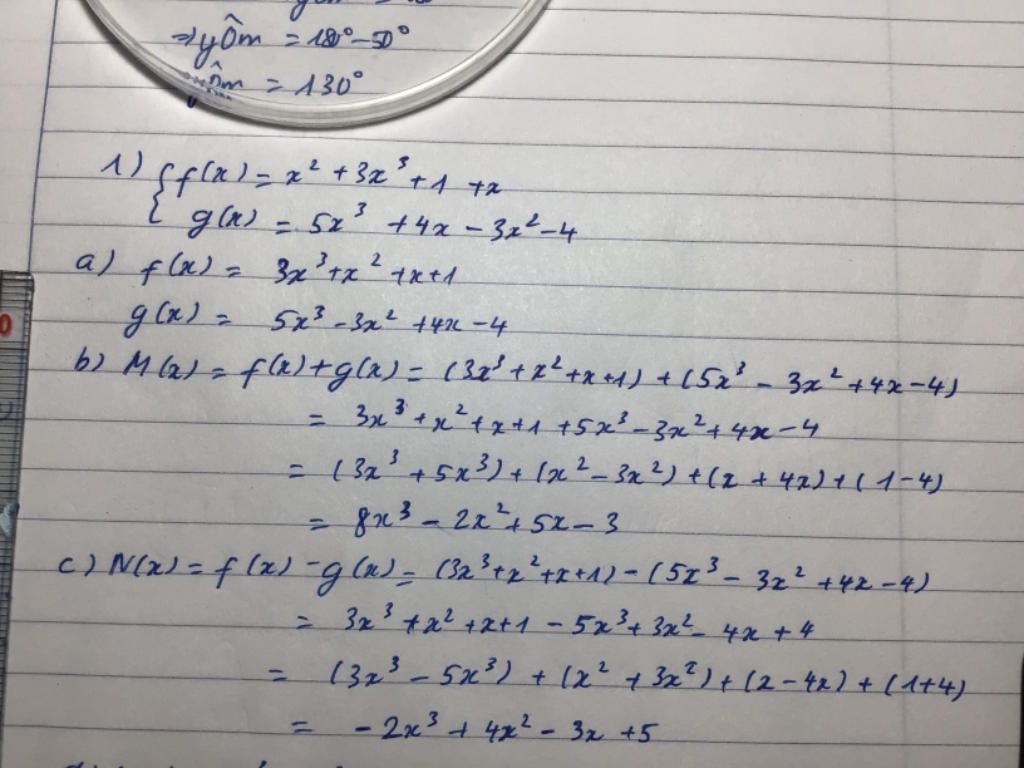 ⇒yÔm = 180°-50°
= 130°
1) { f(x) = x² + 3x³ + 1 + x
g(x) = 5x³ + 4x - 3x² - 4
a) f(x) = 3x³ + x² + x + 1
g(x) = 5x³ - 3x² + 4x - 4
b) M(x) = f(x) + g(x) = (3x³ + x² + x + 1) + (5x³ - 3x² + 4x - 4)
= 3x³ + x² + x + 1 + 5x³ - 3x² + 4x - 4
= (3x³ + 5x³) + (x² - 3x²) + (x + 4x) + (1 - 4)
= 8x³ - 2x² + 5x - 3
c) N(x) = f(x) - g(x) = (3x³ + x² + x + 1) - (5x³ - 3x² + 4x - 4)
= 3x³ + x² + x + 1 - 5x³ + 3x² - 4x + 4
= (3x³ - 5x³) + (x² + 3x²) + (x - 4x) + (1 + 4)
= -2x³ + 4x² - 3x + 5